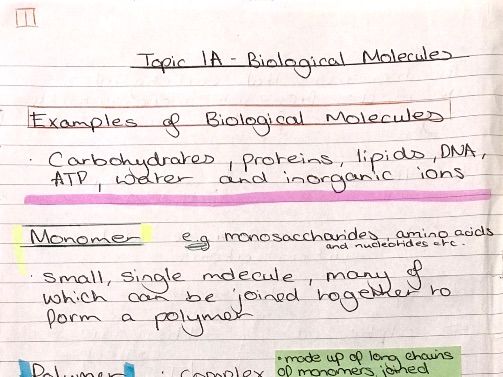 1
Topic 1A - Biological Molecules
Examples of Biological Molecules
· Carbohydrates, proteins, lipids, DNA,
ATP, water and inorganic ions
Monomer eg monosaccharides, amino acids
and nucleotides etc.
· small, single molecule, many of
which can be joined together to
form a polymer
Polymer : complex
• made up of long chains
of monomers joined